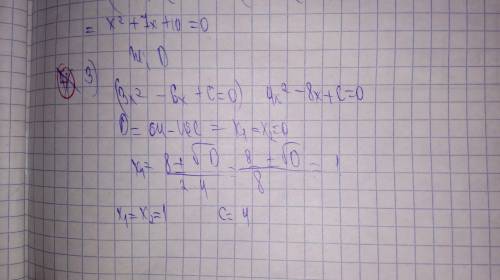 = x² + 7x + 10 = 0
3) (3x² - 6x + C = 0) 4x² - 8x + C = 0
D = 64 - 16C = x₁ = x₂ = 0
= 8 ± √D / 2 4 = 8 ± √D / 8 = 1
x₁ = x₂ = 1 C = 4